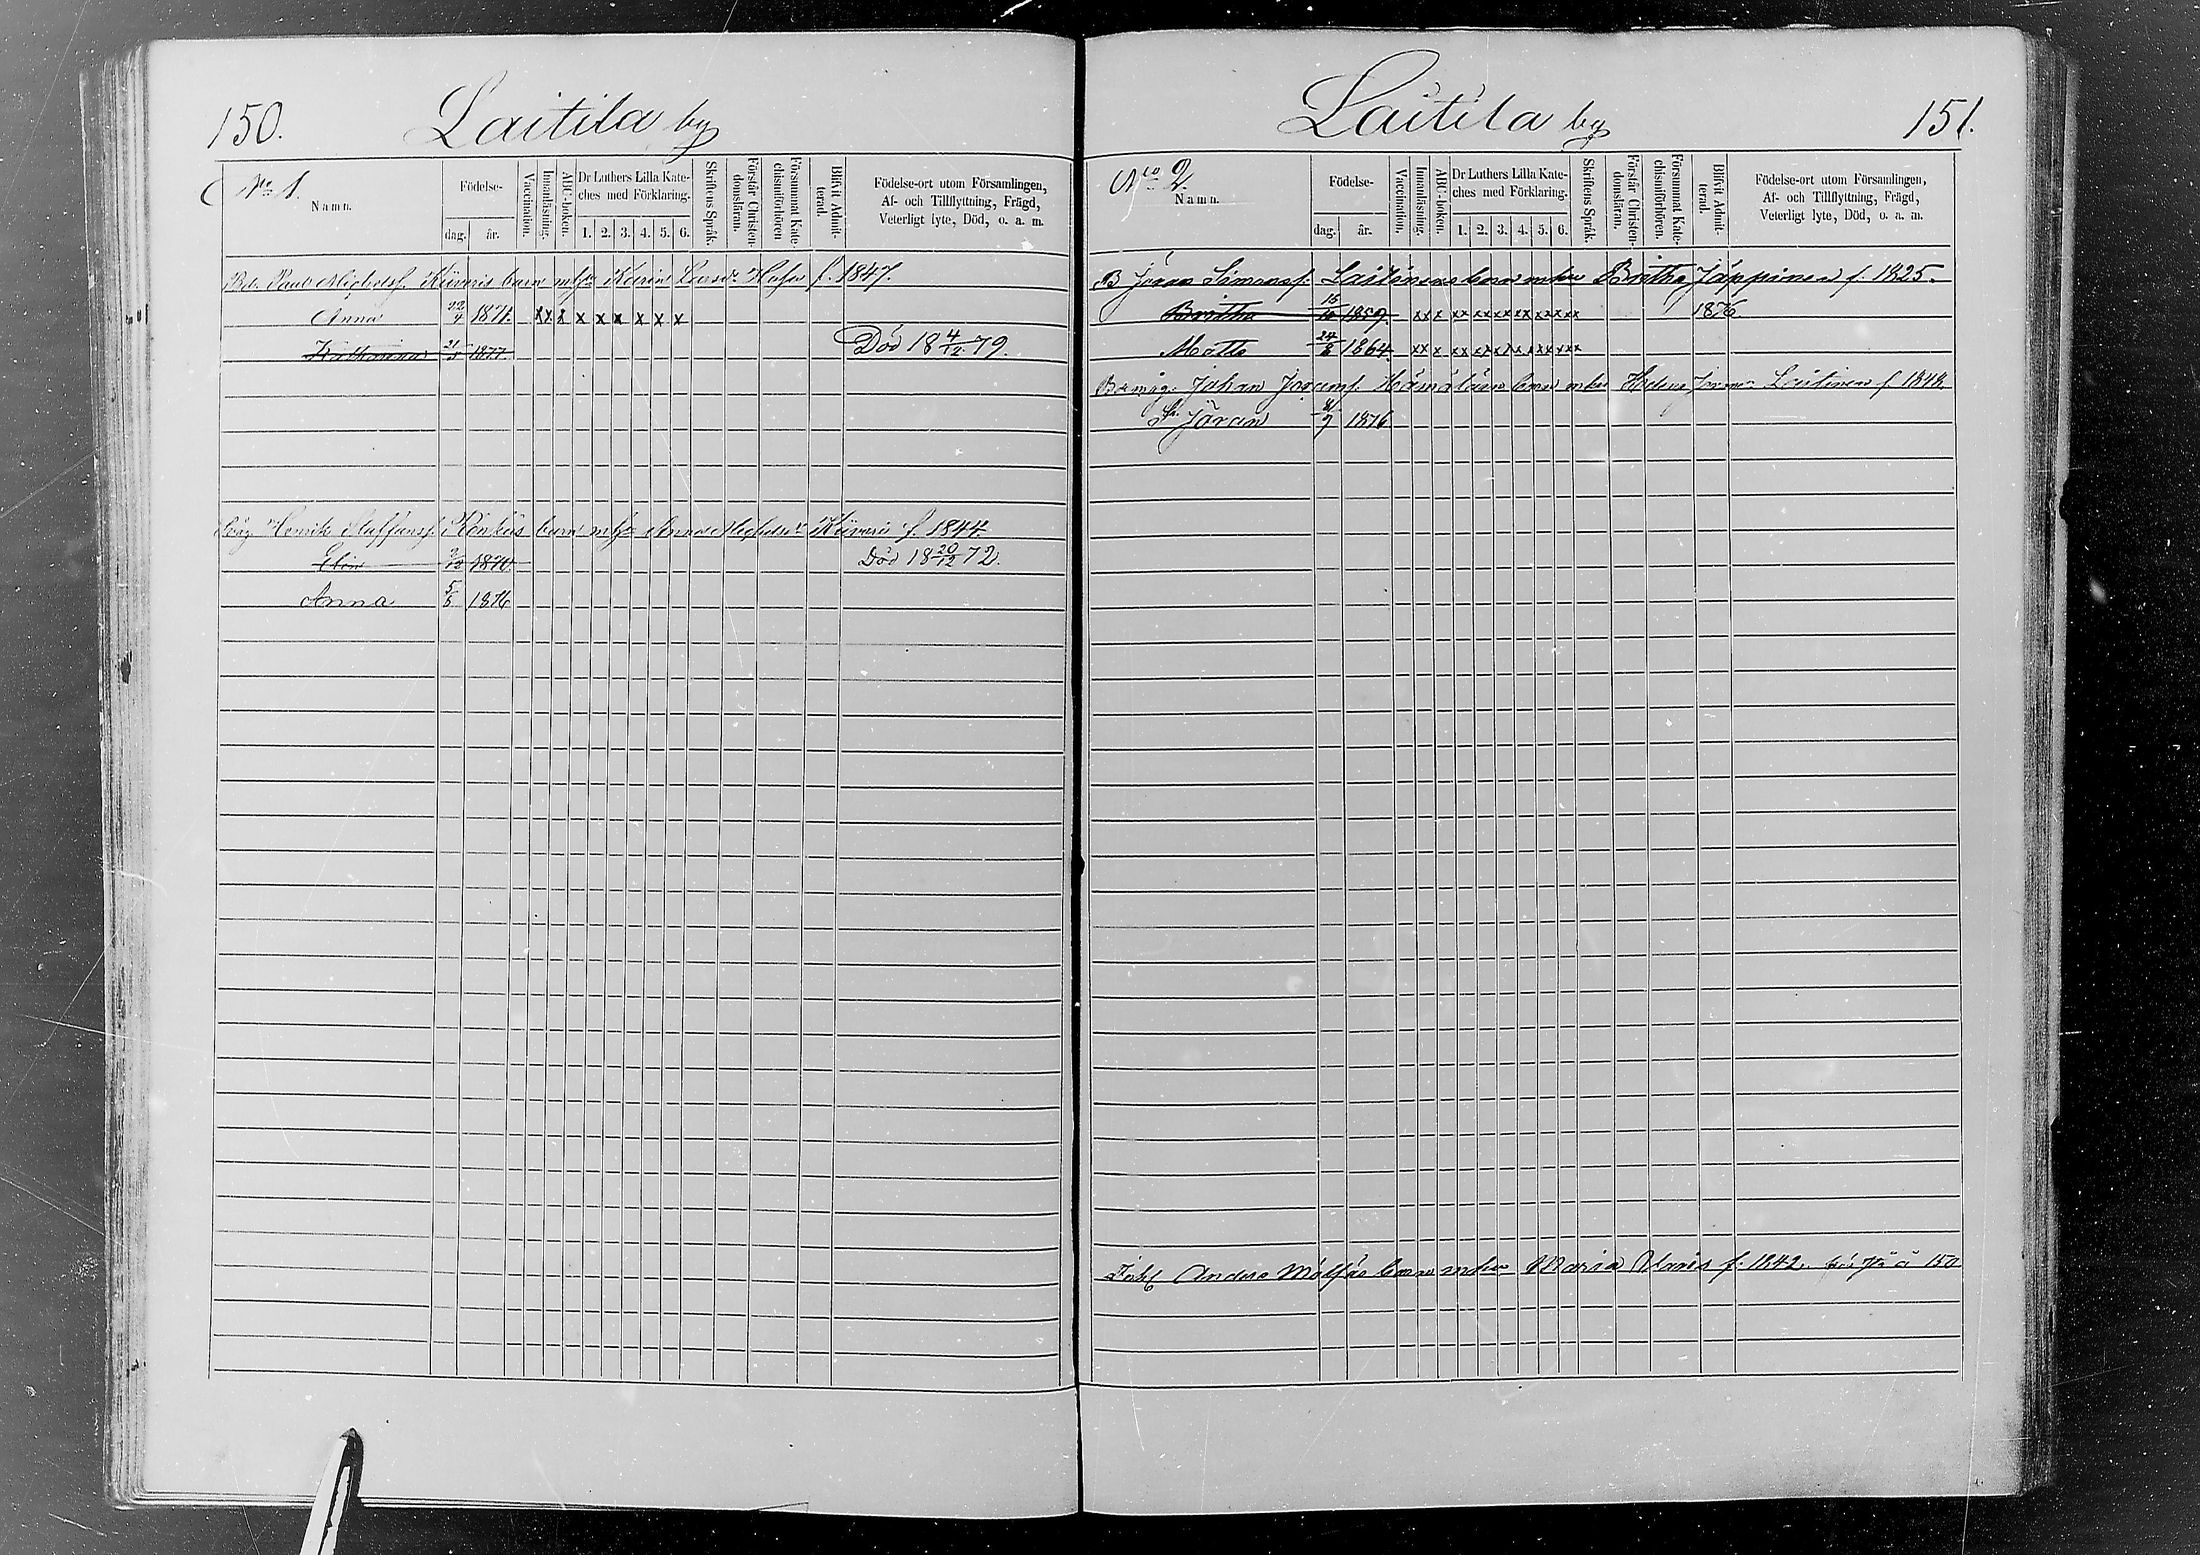 150.
Laitila by
No 1.
Namn.
Födelse-
dag. år.
Vaccination.
Innanläsning.
ABC-boken.
Dr Luthers Lilla Kate-
ches med Förklaring.
1. 2. 3. 4. 5. 6.
Skriftens Språk.
Förstår Christen-
domsläran.
Försummat Kate-
chismiförhören
Blifvit Admit-
terad.
Födelse-ort utom Församlingen,
Af- och Tillflyttning, Frägd,
Veterligt lyte, Död, o. a. m.
Paul Michelsf. Kiiveris barn Karin Larsdr f. 1847.
Anna 22/4 1871. xx x x x x x x x
Katharina 21/5 1877 Död 18 4/12 79.
Henrik Staffansf. barn Anna Michelsdr Kiiveri f. 1844
Elin 2/12 1870 Död 18 20/12 72.
Anna 5/5 1876
Laitila by
151.
No 2.
Namn.
Födelse-
dag. år.
Vaccination.
Innanläsning.
ABC-boken.
Dr Luthers Lilla Kate-
ches med Förklaring.
1. 2. 3. 4. 5. 6.
Skriftens Språk.
Förstår Christen-
domsläran.
Försummat Kate-
chismiförhören.
Blifvit Admit-
terad.
Födelse-ort utom Församlingen,
Af- och Tillflyttning, Frägd,
Veterligt lyte, Död, o. a. m.
B Jöran Simonsf. Laitinens barn m hu Britha Jäppinen f. 1825.
Britha 1859. xx x xx xx xx xx xx xx 1876
Matts 24/8 1864 xx x xx xx xx xx xx xx
Johan Joransf. Hämäläin barn m hu Laitinen f 1848
Jöran 1876
Anders barn m hu Maria f. 1842. 150